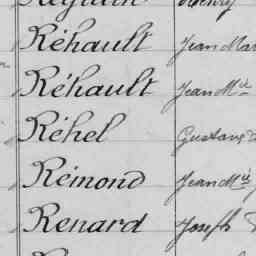 Réhault Jean Mar
Réhault Jean Mie
Réhel Gustave
Rémond Jean Mie
Renard Joseph